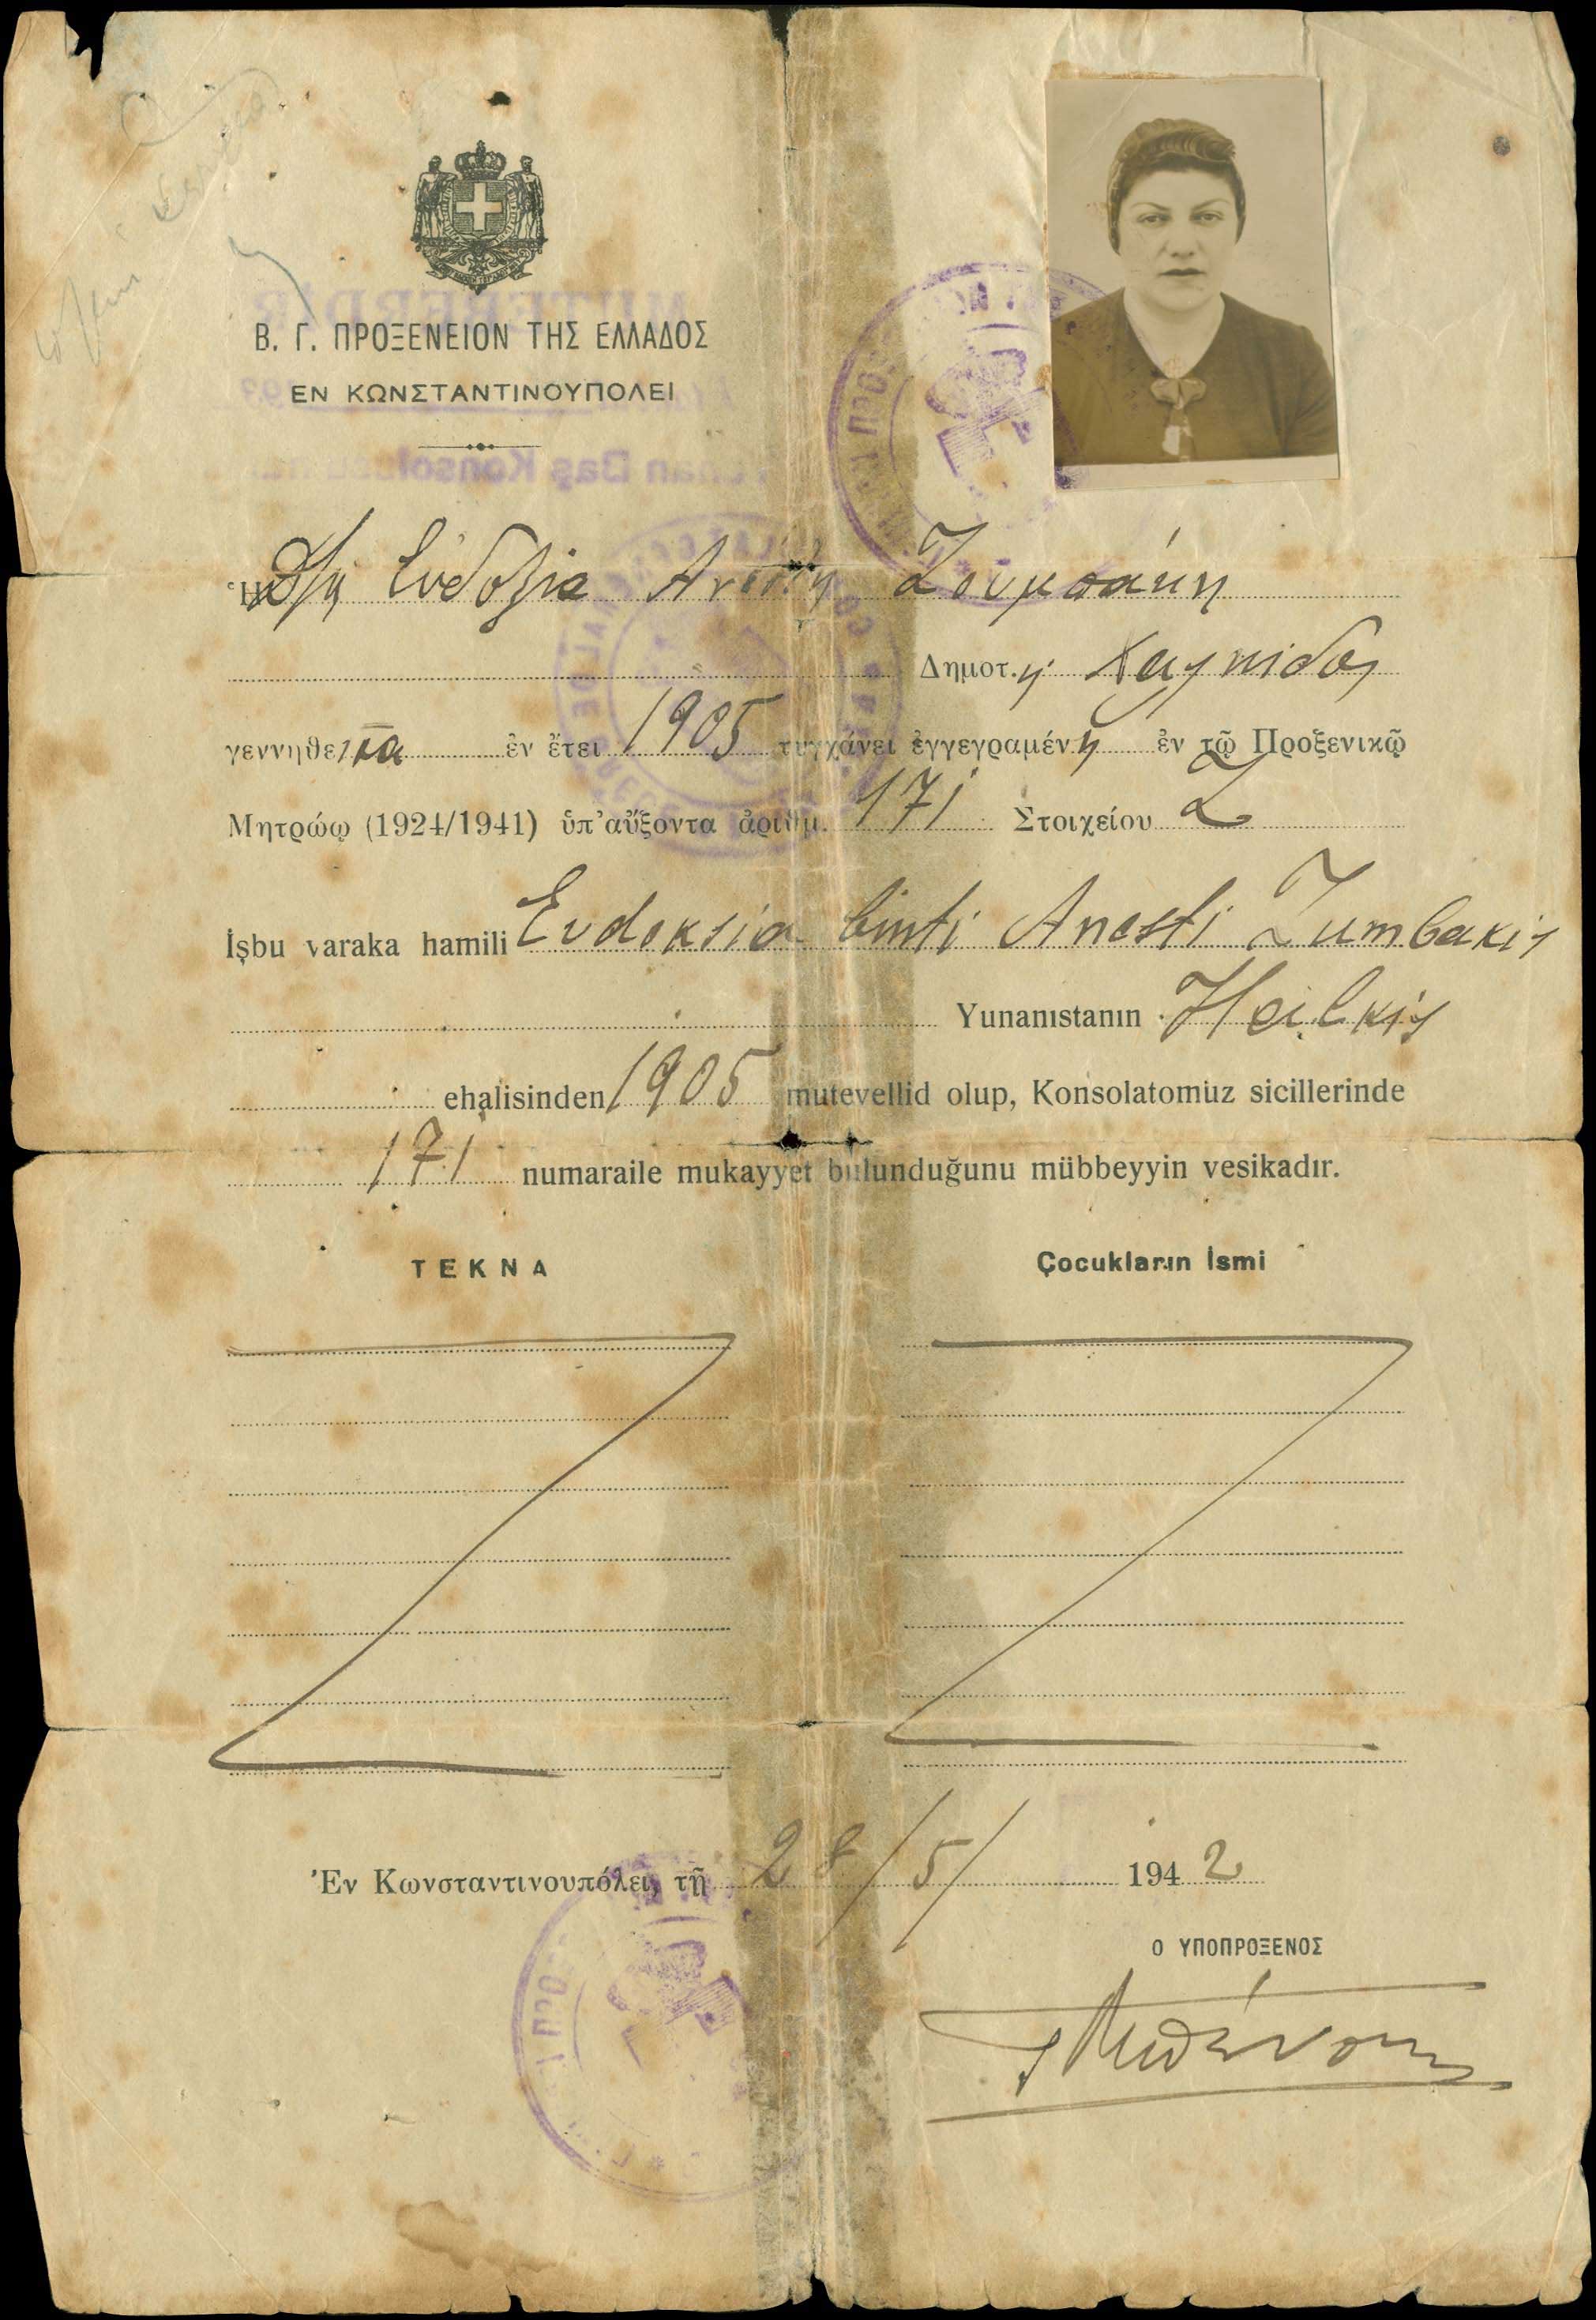 Β. Γ. ΠΡΟΞΕΝΕΙΟΝ ΤΗΣ ΕΛΛΑΔΟΣ
ΕΝ ΚΩΝΣΤΑΝΤΙΝΟΥΠΟΛΕΙ
Εὐδοξία Ανέστη Ζουμπάκη
Δημοτ.ὴ Χαλκίδος
γεννηθεῖσα ἐν ἔτει 1905 τυγχάνει ἐγγεγραμένη ἐν τῷ Προξενικῷ
Μητρώῳ (1924/1941) ὑπ'αὔξοντα ἀριθμ. 171 Στοιχείου Ζ
İşbu varaka hamili Evdoksia binti Anesti Zumbakis
Yunanıstanın Halkis
ehalisinden 1905 mutevellid olup, Konsolatomuz sicillerinde
171 numaraile mukayyet bulunduğunu mübbeyyin vesikadır.
ΤΕΚΝΑ Çocukların İsmi
Ἐν Κωνσταντινουπόλει, τῇ 28/5/ 1942
Ο ΥΠΟΠΡΟΞΕΝΟΣ